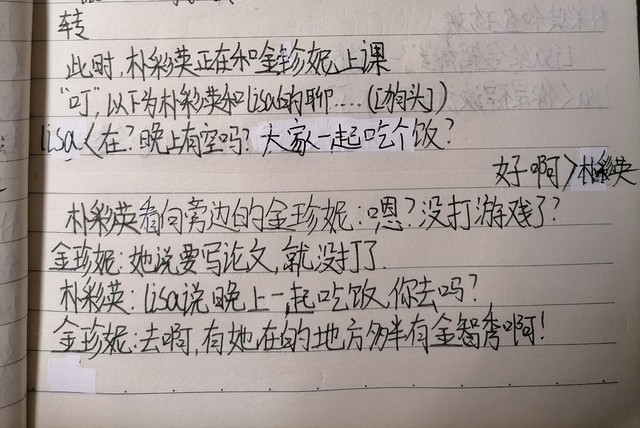 转
此时,朴彩英正在和金珍妮上课
"叮",以下为朴彩英和lisa的聊....([狗头])
lisa<在?晚上有空吗?大家一起吃个饭?
好啊>朴彩英
朴彩英看向旁边的金珍妮:嗯?没打游戏了?
金珍妮:她说要写论文,就没打了.
朴彩英:lisa说晚上一起吃饭,你去吗?
金珍妮:去啊,有她在的地方多半有金智秀啊!